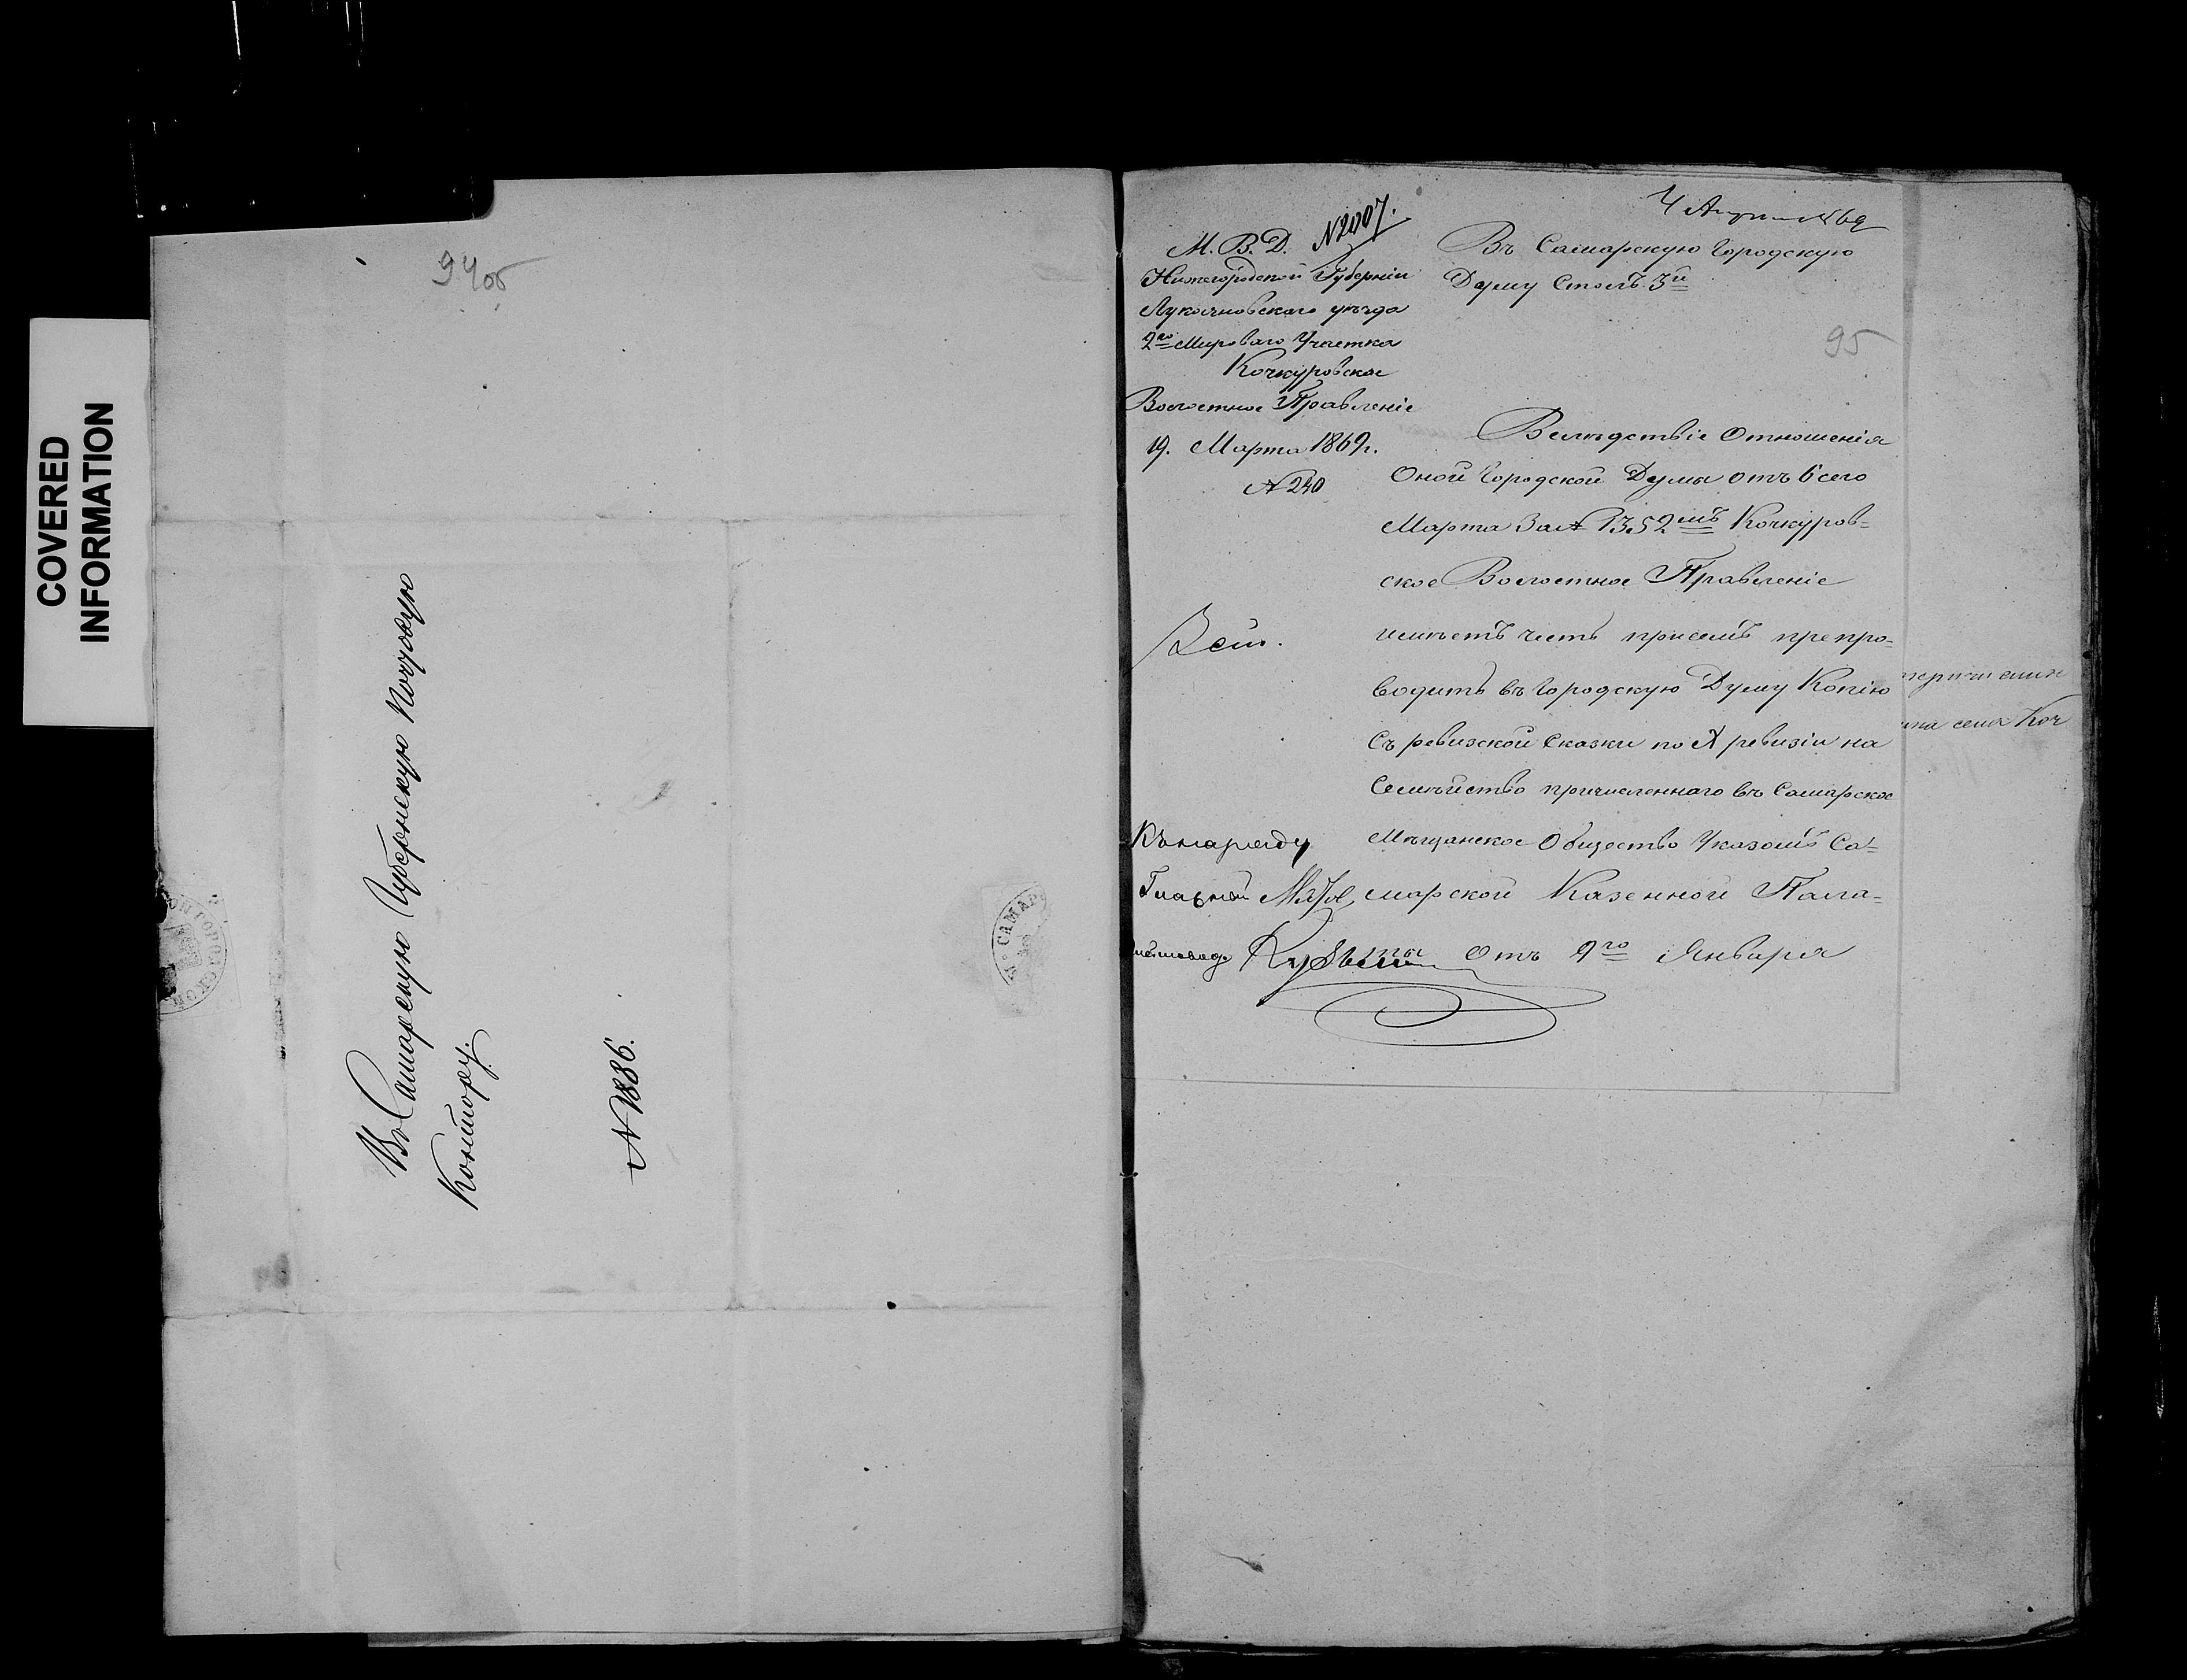 COVERED
INFORMATION
94об
Въ Самарскую Губернскую Почтовую
Контору.
N 1886.
САМАР
4 Апреля 869
М. В. Д. N 2007.
Нижегородской Губерніи
Лукояновскаго уѣзда
2го Мироваго Участка
Кочкуровское
Волостное Правленіе
19. Марта 1869 г.
N 240
Въ Самарскую Городскую
Думу Столъ 3й
95
Вслѣдствіе Отношенія
Оной Городской Думы отъ 6 сего
Марта За N 1352мъ Кочкуров=
ское Волостное Правленіе
имѣетъ честь присемъ препро=
водить въ Городскую Думу Копію
Съ ревизской Сказки по X ревизіи на
Семѣйство причисленнаго въ Самарское
Мѣщанское Общество Указомъ Са=
марской Казенной Пала=
ты Отъ 9го Января
Къ наряду